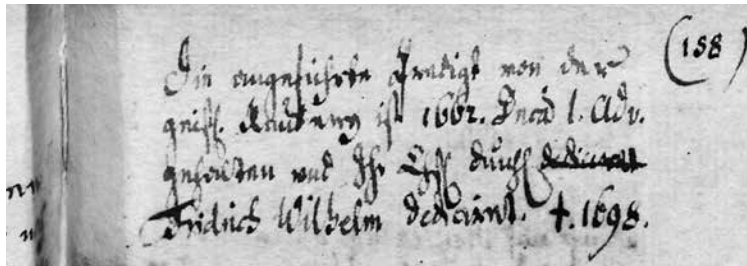 (158)
Die angeführte Predigt von der
geistl. ist 1662. 1. Adv.
gehalten und Ihr Chfl durchl dedicirt
Fridrich Wilhelm dedicirt. †. 1698.